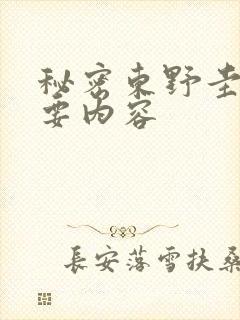 秘密東野圭
要内容
長安落雪扶桑